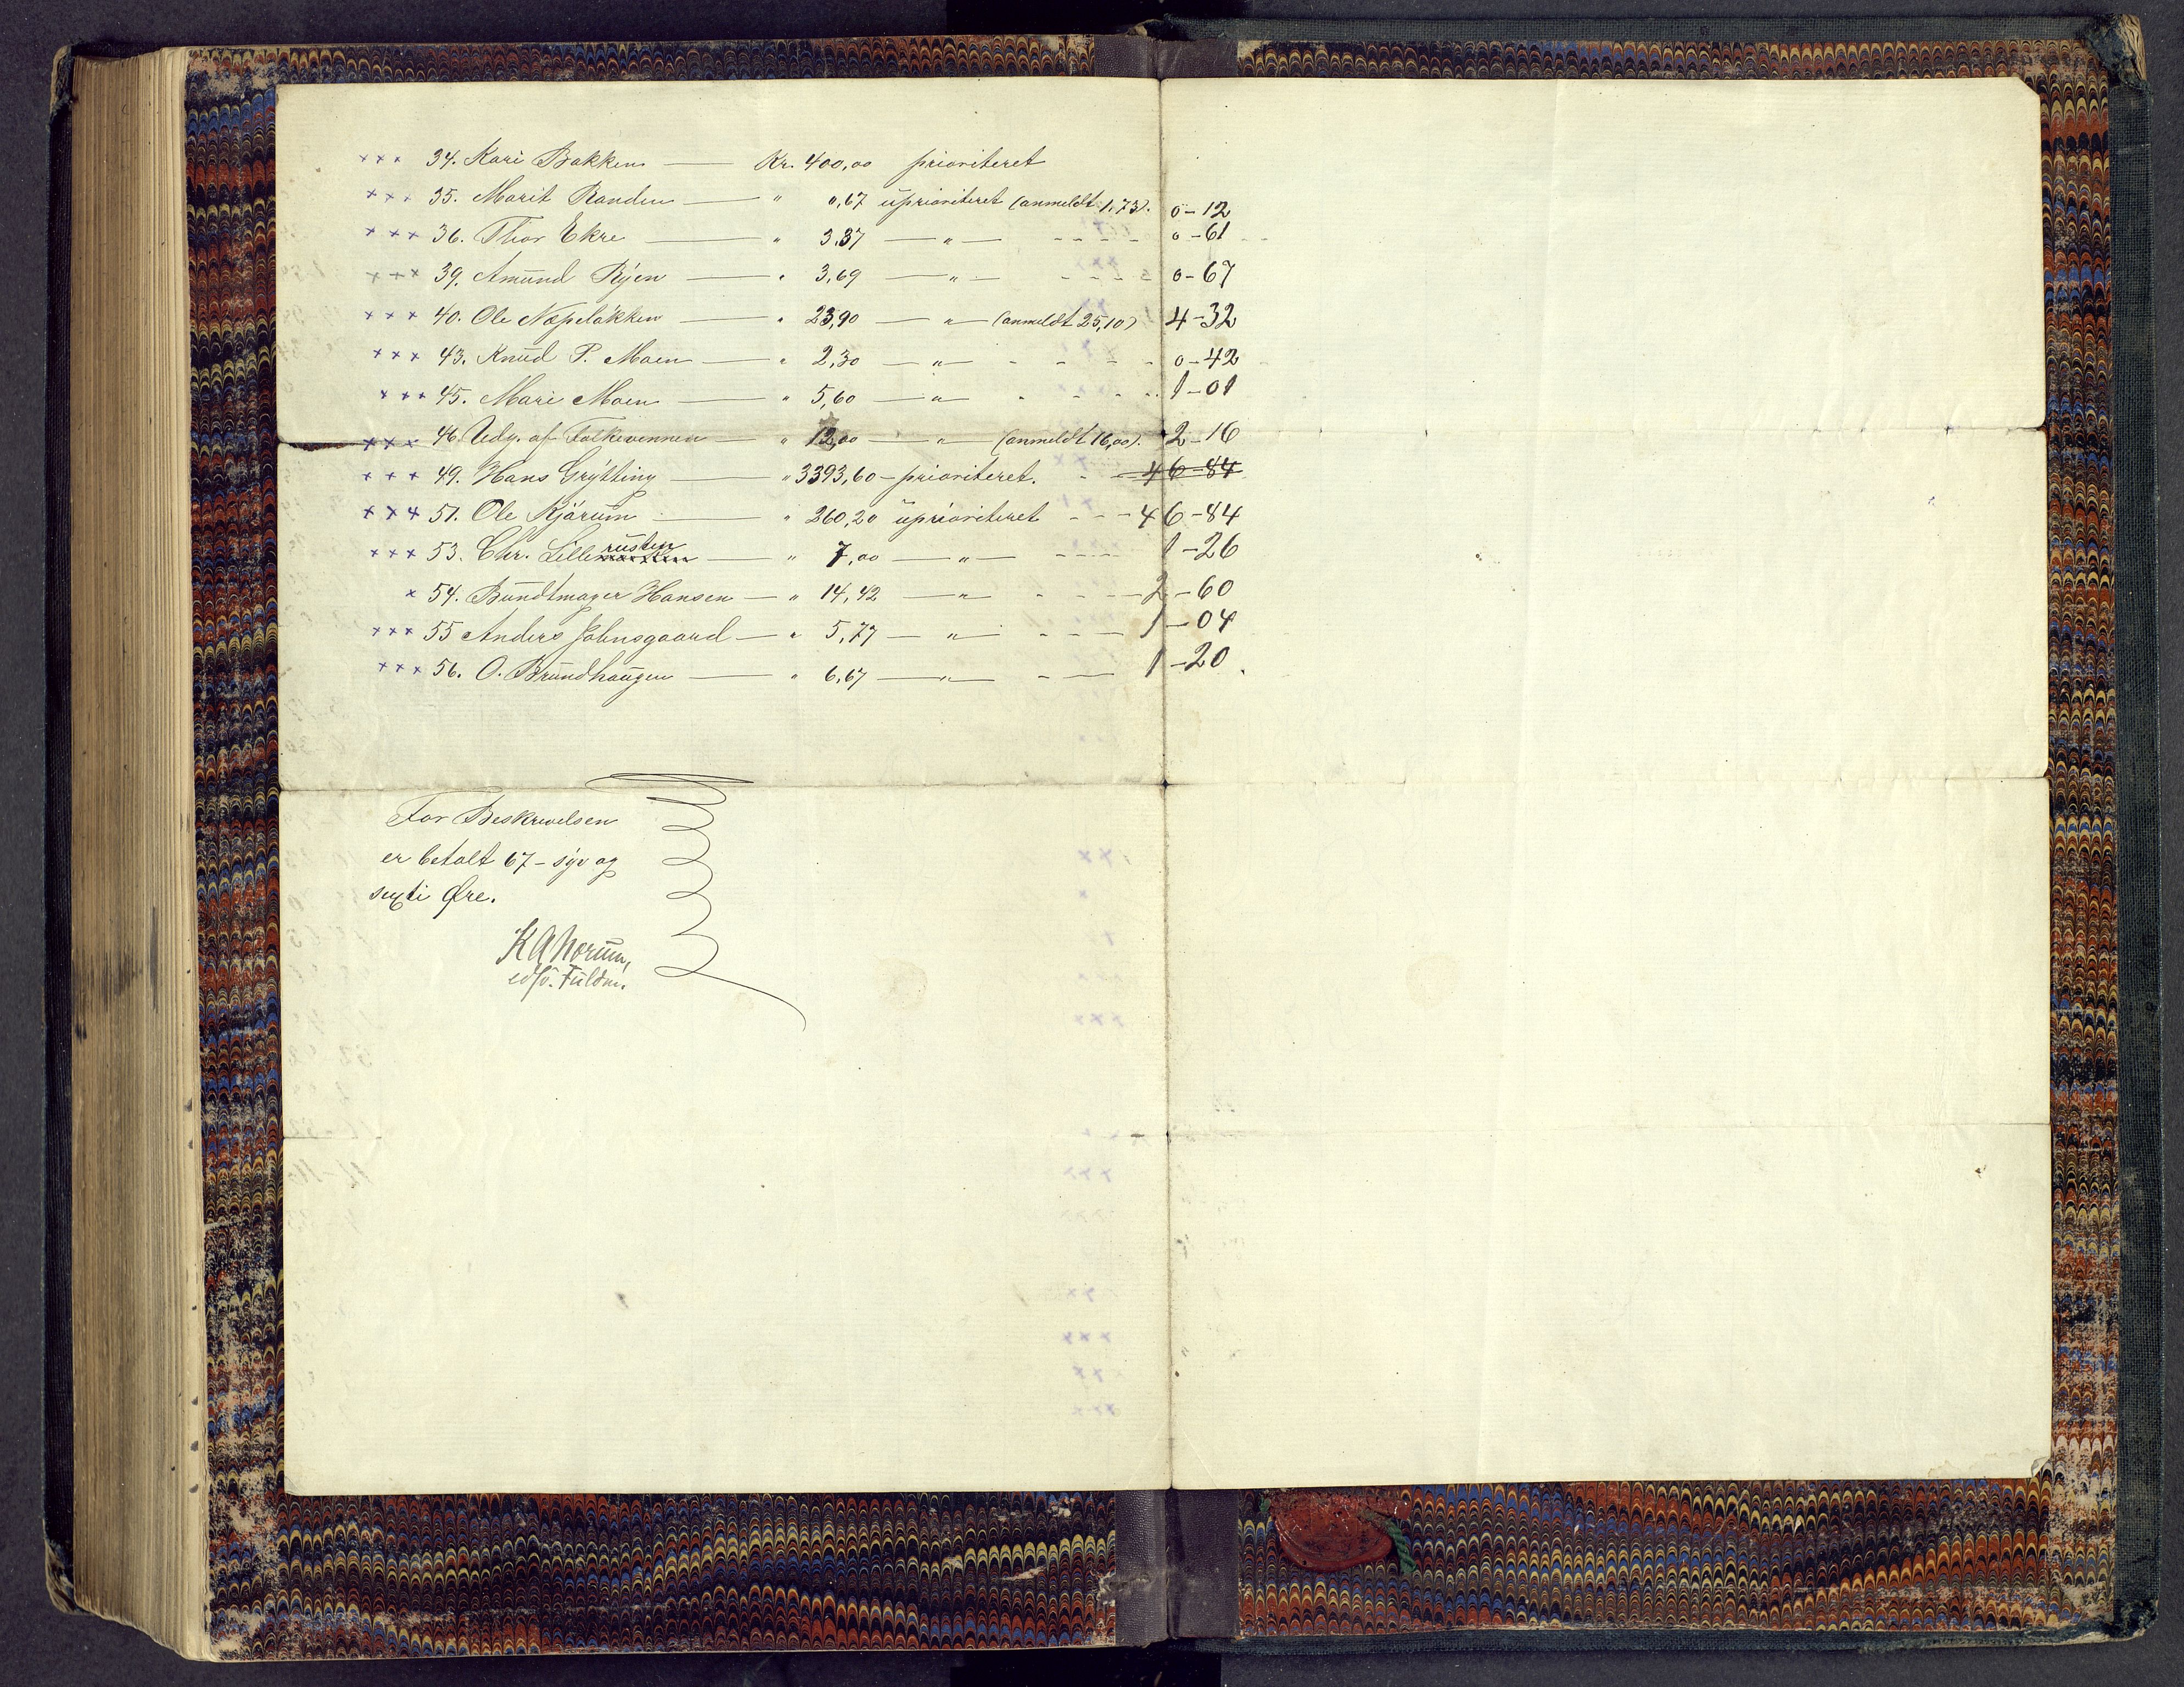 ××× 34. Kari Bakken — Kr. 400,00 prioriteret
××× 35. Marit Randen — " 0,67 uprioriteret (anmeldt 1,73). 0-12
××× 36. Thor Ekre — " 3,37 — " — 0-61
××× 39. Amund Ryen — " 3,69 — " — 0-67
××× 40. Ole Næpeløkken — " 23,90 — " — (anmeldt 25,10) 4-32
××× 43. Knud P. Moen — " 2,30 — " — 0-42
××× 45. Mari Moen — " 5,60 — " — 1-01
××× 46. Udg. af Folkevennen — " 12,00 — " — (anmeldt 16,00). 2-16
××× 49. Hans Grytting — " 3393,60 - prioriteret. 46-84
××× 51. Ole Kjørum — " 260,20 uprioriteret - - - 46-84
××× 53. Chr. Lillerusten — " 7,00 — " — 1-26
× 54. Bundtmager Hansen — " 14,42 — " — 2-60
××× 55 Anders Johnsgaard — " 5,77 — " — 1-04
××× 56. O. Brundhaugen — " 6,67 — " — 1-20.
For Beskrivelsen
er betalt 67 - syv og
sexti Øre.
K A Norum,
edsv. Fuldm.